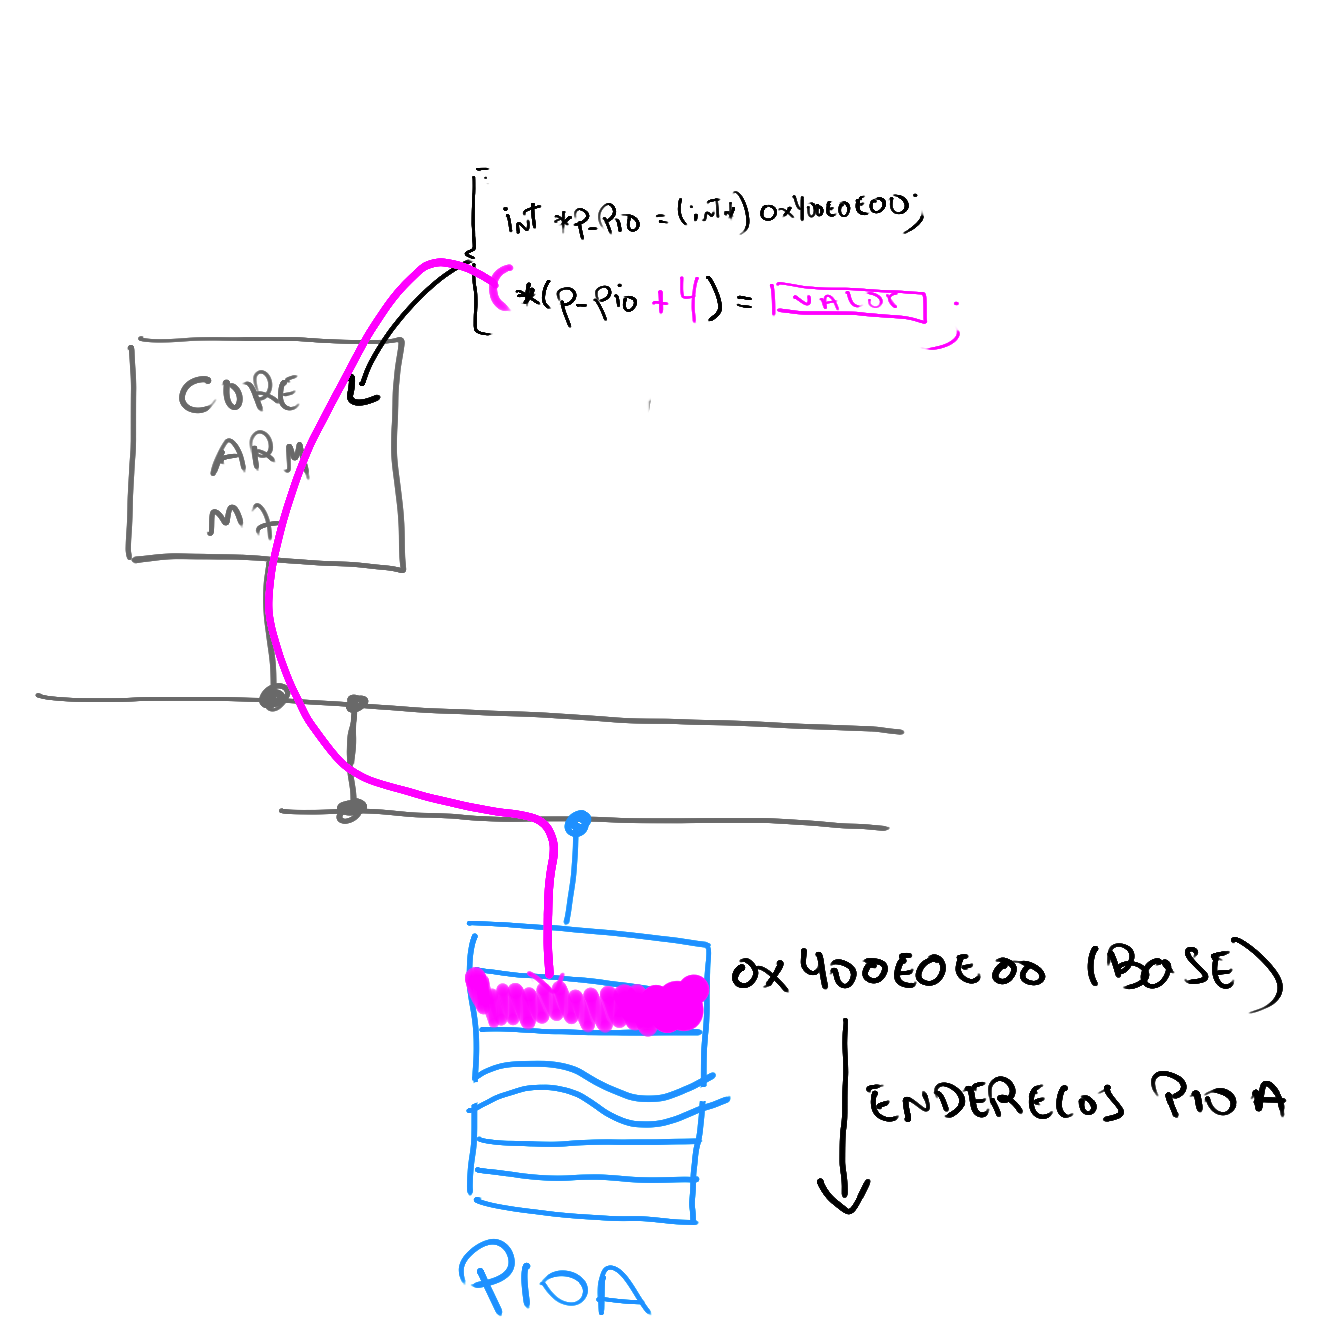 int *p_Pio = (int*) 0x400E0E00;
*(p_pio + 4) = VALOR ;
CORE
ARM
M7
0x400E0E00 (BASE)
ENDERECOS PIOA
PIOA